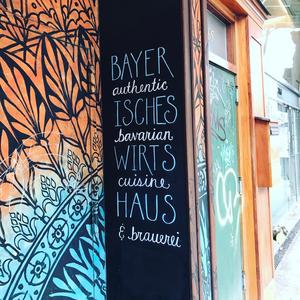 BAYER
authentic
ISCHES
bavarian
WIRTS
cuisine
HAUS
& brauerei